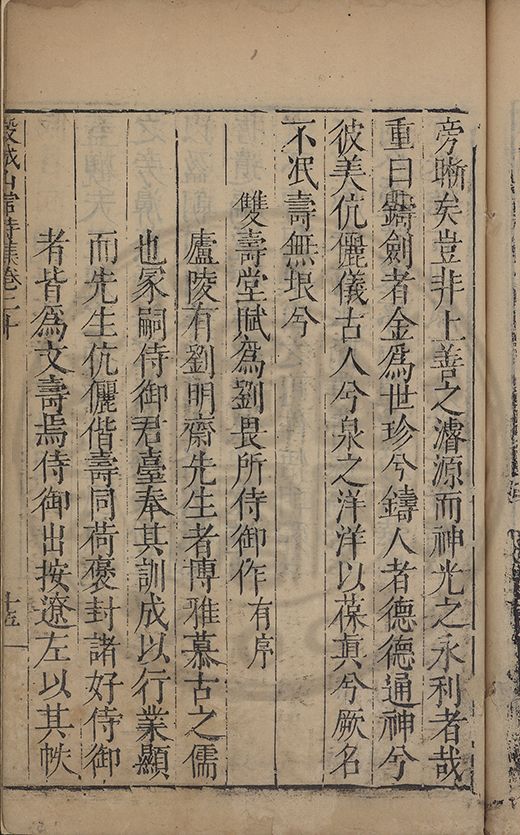 旁晰矣豈非上善之濬源而神光之永利者哉
重曰鑄劍者金爲世珍兮鑄人者德德通神兮
彼美伉儷儀古人兮泉之洋洋以葆眞兮厥名
不泯壽無垠兮
雙壽堂賦爲劉畏所侍御作有序
廬陵有劉明齋先生者博雅慕古之儒
也冢嗣侍御君臺奉其訓成以行業顯
而先生伉儷偕壽同荷褒封諸好侍御
者皆爲文壽焉侍御出按遼左以其帙
穀城山館詩集卷之一
十五